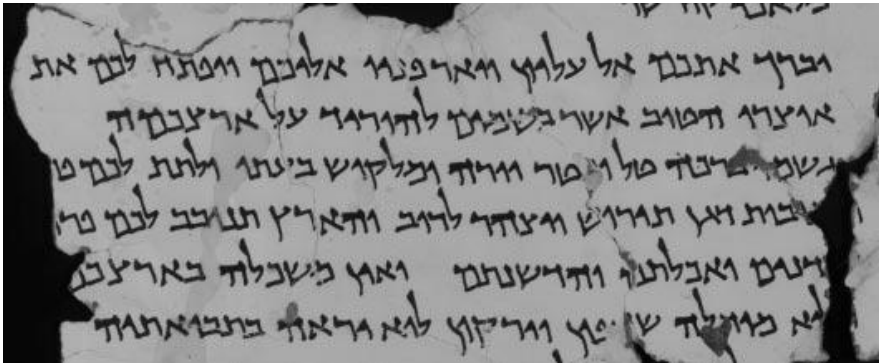 מלאכי קודשו
יברך אתכם אל עליון ויאר פניו אליכם ויפתח לכם את
אוצרו הטוב אשר בשמים להוריד על ארצכמה
גשמי ברכה טל ומטר יורה ומלקוש בעתו ולתת לכם
דגן תירוש ויצהר לרוב והארץ תנובב לכם פרי
ואכלתם והדשנתם ואין משכלה בארצכם
מוחלה שדפון וירקון לוא יראה בתבואתיה